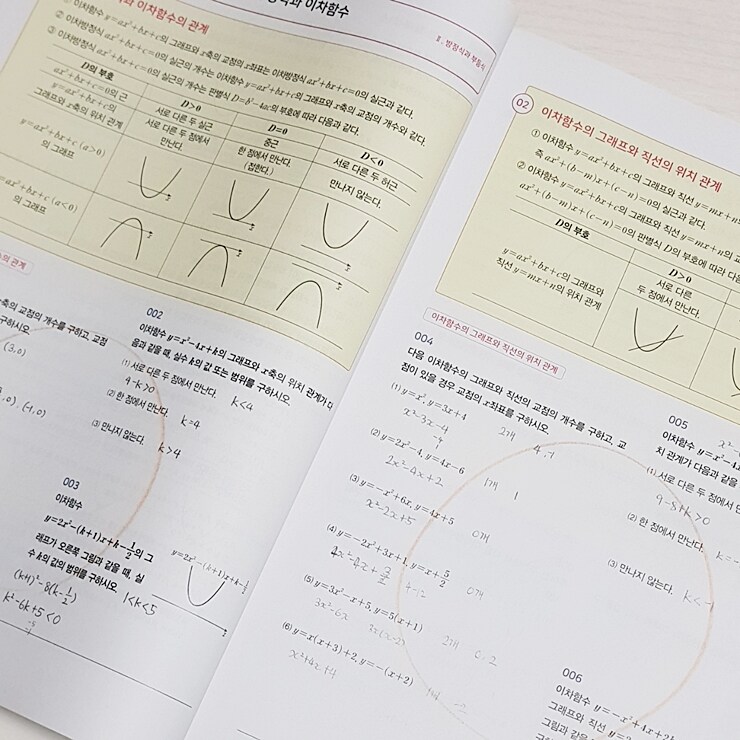 이차함수
의 관계
Ⅱ. 방정식과 부등식
① 이차함수 y=ax²+bx+c의 그래프와 x축의 교점의 x좌표는 이차방정식 ax²+bx+c=0의 실근과 같다.
② 이차방정식 ax²+bx+c=0의 실근의 개수는 이차함수 y=ax²+bx+c의 그래프와 x축의 교점의 개수와 같다.
③ 이차방정식 ax²+bx+c=0의 실근의 개수는 판별식 D=b²-4ac의 부호에 따라 다음과 같다.
D의 부호
D>0
D=0
D<0
ax²+bx+c=0의 근
서로 다른 두 실근
중근
서로 다른 두 허근
y=ax²+bx+c의
그래프와 x축의 위치 관계
서로 다른 두 점에서
만난다.
한 점에서 만난다.
(접한다.)
만나지 않는다.
y=ax²+bx+c (a>0)
의 그래프
y=ax²+bx+c (a<0)
의 그래프
의 관계
축의 교점의 개수를 구하고, 교점
구하시오.
(3,0)
, (-1,0)
002
이차함수 y=x²-4x+k의 그래프와 x축의 위치 관계가 다
음과 같을 때, 실수 k의 값 또는 범위를 구하시오.
(1) 서로 다른 두 점에서 만난다. k<4
4-k>0
(2) 한 점에서 만난다. k=4
(3) 만나지 않는다. k>4
003
이차함수
y=2x²-(k+1)x+k-1/2의 그
래프가 오른쪽 그림과 같을 때, 실
수 k의 값의 범위를 구하시오. 1<k<5
(k+1)²-8(k-1/2)
k²-6k+5<0
-5
y=2x²-(k+1)x+k-1/2
02 이차함수의 그래프와 직선의 위치 관계
① 이차함수 y=ax²+bx+c의 그래프와 직선 y=mx+n의
즉 ax²+(b-m)x+(c-n)=0의 실근과 같다.
② 이차함수 y=ax²+bx+c의 그래프와 직선 y=mx+n의 교
ax²+(b-m)x+(c-n)=0의 판별식 D의 부호에 따라 다음
D의 부호
D>0
y=ax²+bx+c의 그래프와
직선 y=mx+n의 위치 관계
서로 다른
두 점에서 만난다.
이차함수의 그래프와 직선의 위치 관계
004
다음 이차함수의 그래프와 직선의 교점의 개수를 구하고, 교
점이 있을 경우 교점의 x좌표를 구하시오.
(1) y=x², y=3x+4 2개 4, -1
x²-3x-4
-4
(2) y=2x²-4, y=4x-6 1개 1
2x²-4x+2
(3) y=-x²+6x, y=4x+5 0개
x²-2x+5
(4) y=-2x²+3x+1, y=x+5/2
4-12 0개
(5) y=3x²-x+5, y=5(x+1)
3x²-6x 3x(x-2) 2개 0, 2
(6) y=x(x+3)+2, y=-(x+2)
x²+4x+4 -2
005
이차함수 y=-x²-4x
치 관계가 다음과 같을
(1) 서로 다른 두 점에서 만
(2) 한 점에서 만난다. k=-
(3) 만나지 않는다. k<-
006
이차함수 y=-x²+4x+2k
그래프와 직선 y=2
그림과 같을
구하시오